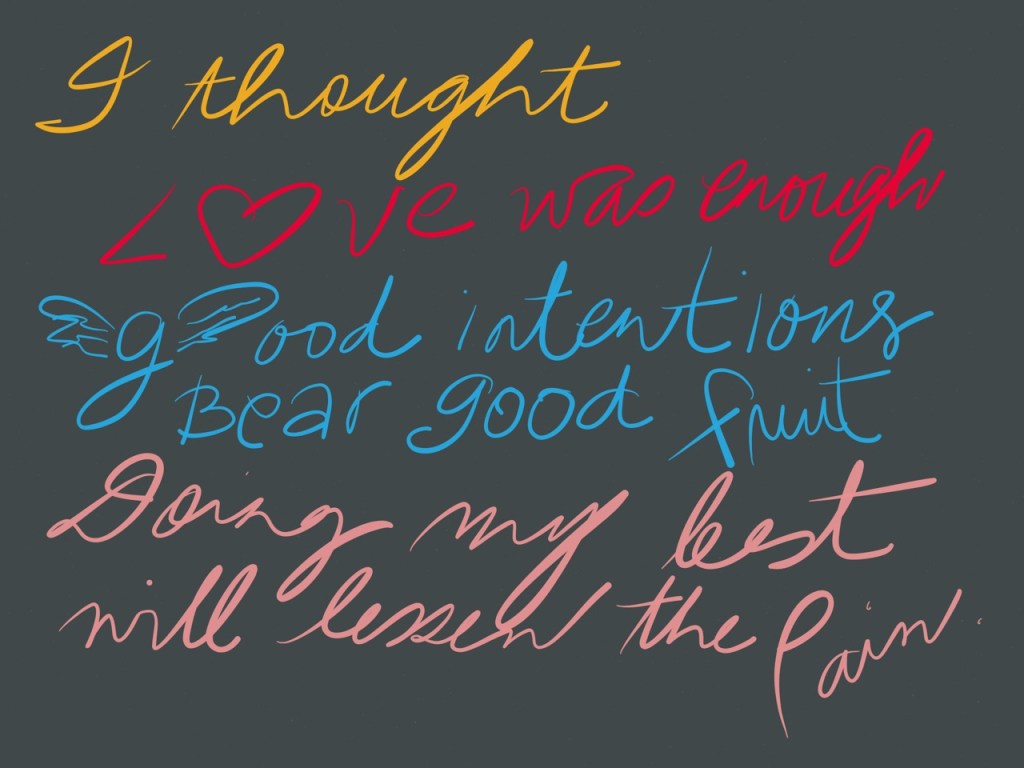 I thought
Love was enough
good intentions
Bear good fruit
Doing my best
will lessen the Pain.